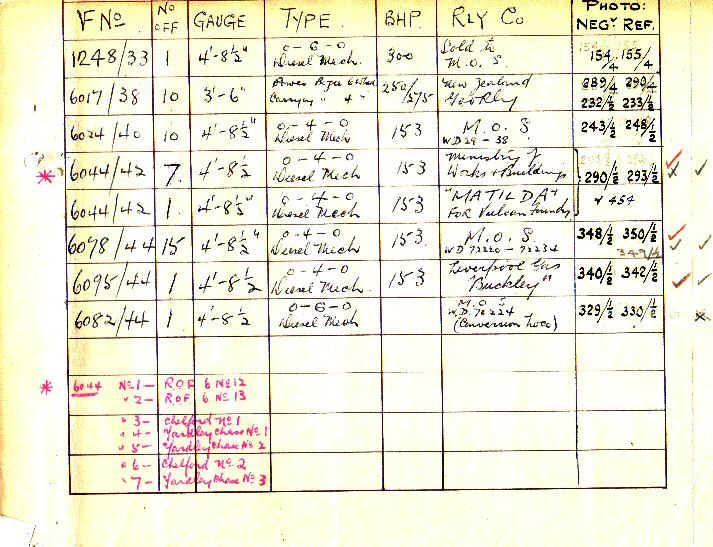 VF No No OFF GAUGE TYPE BHP. RLY Co PHOTO: NEGY REF.
1248/33 1 4'-8½" 0-6-0 Diesel Mech. 300 Sold to M.O.S. 154/4 155/4
6017/38 10 3'-6" Carrying " 4 " 250/275 New Zealand Gov Rly 289/4 290/4
232½ 233½
6024/40 10 4'-8½" 0-4-0 Diesel Mech 153 M.O.S WD 29-38 243/½ 248/½
* 6044/42 7. 4'-8½ 0-4-0 Diesel Mech 153 Ministry of Works + Buildings 290/½ 293/½
6044/42 1. 4'-8½" 0-4-0 Diesel Mech 153 "MATILDA" FOR Vulcan Foundry + 454
6078/44 15 4'-8½" 0-4-0 Diesel Mech 153. M.O.S. WD 72220-72234 348/½ 350/½
349/½
6095/44 1 4'-8½ 0-4-0 Diesel Mech. 153 Liverpool Gas "Buckley" 340/½ 342/½
6082/44 1. 4'-8½ 0-6-0 Diesel Mech M.O.S W.D. 70224 (Conversion Loco) 329/½ 330/½
* 6044 No 1- R.O.F 6 No 12
" 2- R.O.F 6 No 13
" 3- Chelford No 1
" 4- Yardley Chase No 1
" 5- Yardley Chase No 2
" 6- Chelford No 2
" 7- Yardley Chase No 3